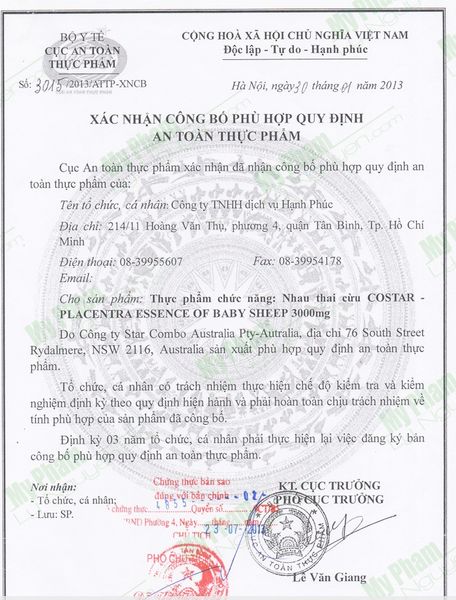 BỘ Y TẾ
CỤC AN TOÀN
THỰC PHẨM
Số: 3015/2013/ATTP-XNCB
CỘNG HOÀ XÃ HỘI CHỦ NGHĨA VIỆT NAM
Độc lập - Tự do - Hạnh phúc
Hà Nội, ngày 30 tháng 01 năm 2013
XÁC NHẬN CÔNG BỐ PHÙ HỢP QUY ĐỊNH
AN TOÀN THỰC PHẨM
Cục An toàn thực phẩm xác nhận đã nhận công bố phù hợp quy định an
toàn thực phẩm của:
Tên tổ chức, cá nhân: Công ty TNHH dịch vụ Hạnh Phúc
Địa chỉ: 214/11 Hoàng Văn Thụ, phường 4, quận Tân Bình, Tp. Hồ Chí
Minh
Điện thoại: 08-39955607 Fax: 08-39954178
Email:
Cho sản phẩm: Thực phẩm chức năng: Nhau thai cừu COSTAR -
PLACENTRA ESSENCE OF BABY SHEEP 3000mg
Do Công ty Star Combo Australia Pty-Autralia, địa chỉ 76 South Street
Rydalmere, NSW 2116, Australia sản xuất phù hợp quy định an toàn thực
phẩm.
Tổ chức, cá nhân có trách nhiệm thực hiện chế độ kiểm tra và kiểm
nghiệm định kỳ theo quy định hiện hành và phải hoàn toàn chịu trách nhiệm về
tính phù hợp của sản phẩm đã công bố.
Định kỳ 03 năm tổ chức, cá nhân phải thực hiện lại việc đăng ký bản
công bố phù hợp quy định an toàn thực phẩm.
Nơi nhận:
- Tổ chức, cá nhân;
- Lưu: SP.
Chứng thực bản sao
đúng với bản chính
chứng thực Quyển số
UBND Phường 4, Ngày tháng năm
23-07-
CHỦ TỊCH
KT. CỤC TRƯỞNG
PHÓ CỤC TRƯỞNG
AN TOÀN THỰC PHẨM
Lê Văn Giang